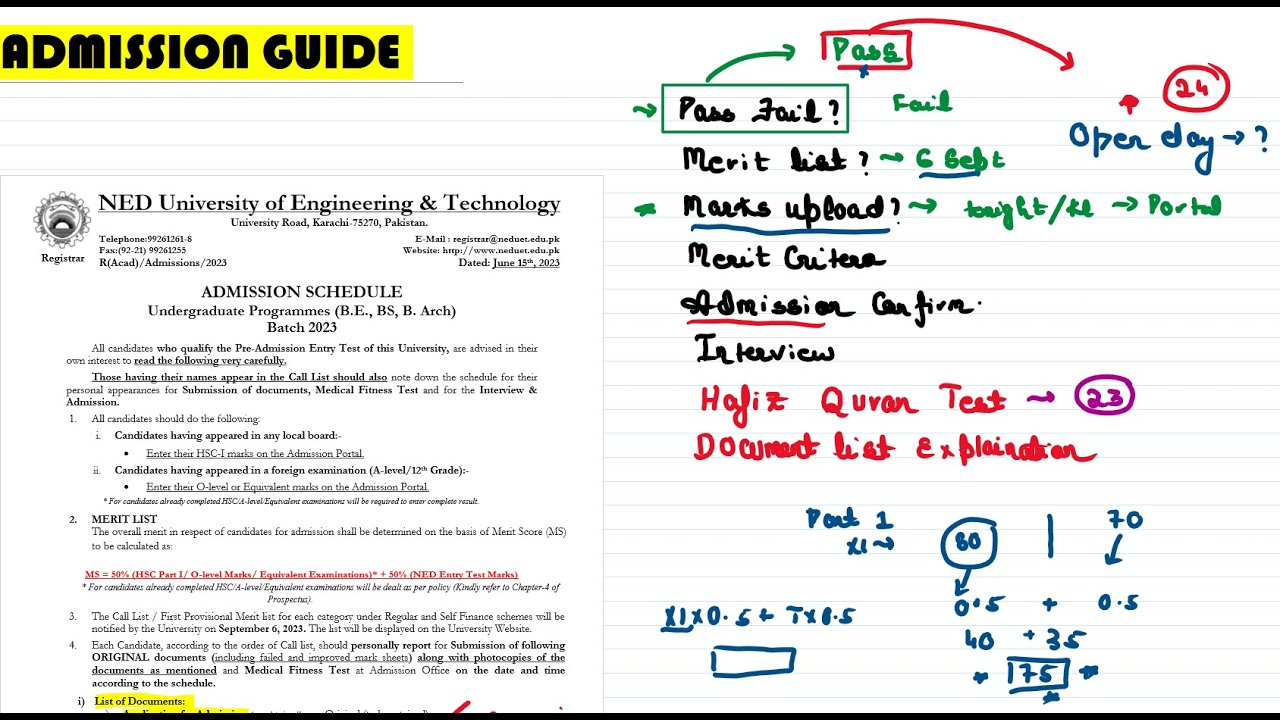 ADMISSION GUIDE
NED University of Engineering & Technology
University Road, Karachi-75270, Pakistan.
Telephone:99261261-8
Fax:(92-21) 99261255
R(Acad)/Admissions/2023
E-Mail : registrar@neduet.edu.pk
Website: http://www.neduet.edu.pk
Dated: June 15th, 2023
Registrar
ADMISSION SCHEDULE
Undergraduate Programmes (B.E., BS, B. Arch)
Batch 2023
All candidates who qualify the Pre-Admission Entry Test of this University, are advised in their
own interest to read the following very carefully.
Those having their names appear in the Call List should also note down the schedule for their
personal appearances for Submission of documents, Medical Fitness Test and for the Interview &
Admission.
1. All candidates should do the following:
i. Candidates having appeared in any local board:-
• Enter their HSC-I marks on the Admission Portal.
ii. Candidates having appeared in a foreign examination (A-level/12th Grade):-
• Enter their O-level or Equivalent marks on the Admission Portal.
* For candidates already completed HSC/A-level/Equivalent examinations will be required to enter complete result.
2. MERIT LIST
The overall merit in respect of candidates for admission shall be determined on the basis of Merit Score (MS)
to be calculated as:
MS = 50% (HSC Part I/ O-level Marks/ Equivalent Examinations)* + 50% (NED Entry Test Marks)
* For candidates already completed HSC/A-level/Equivalent examinations will be dealt as per policy (Kindly refer to Chapter-4 of
Prospectus).
3. The Call List / First Provisional Merit list for each category under Regular and Self Finance schemes will be
notified by the University on September 6, 2023. The list will be displayed on the University Website.
4. Each Candidate, according to the order of Call list, should personally report for Submission of following
ORIGINAL documents (including failed and improved mark sheets) along with photocopies of the
documents as mentioned and Medical Fitness Test at Admission Office on the date and time
according to the schedule.
i) List of Documents:
Pass
24
Pass Fail? Fail
Open day → ?
Merit list? → 6 Sept
Marks upload? → tonight/kl → Portal
Merit Critera
Admission Confirm.
Interview
Hafiz Quran Test → 23
Document list Explaination
Part 1 80 | 70
XI →
0.5 + 0.5
XI x 0.5 + T x 0.5
40 + 35
75